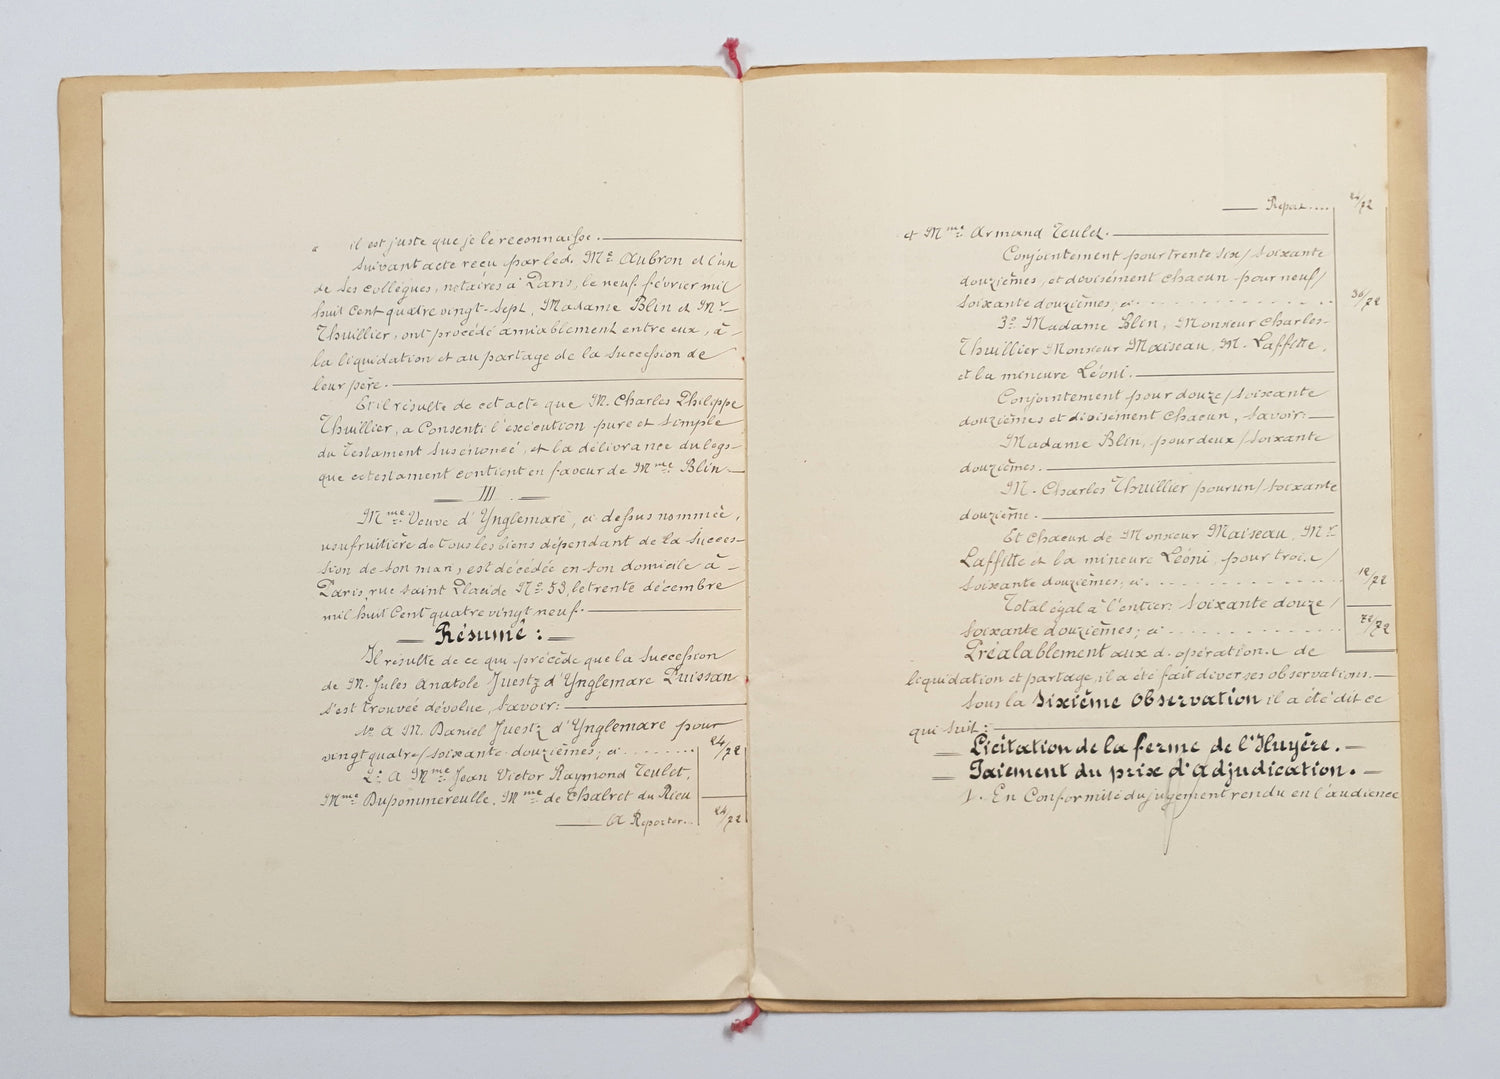 " il est juste que je le reconnaisse.
Suivant acte reçu par led. Me Aubron et l'un
de ses collègues, notaires à Paris, le neuf février mil
huit cent quatre vingt-sept, Madame Blin et Mr
Thuillier, ont procédé amiablement entre eux, à
la liquidation et au partage de la succession de
leur père.
Et il résulte de cet acte que M. Charles Philippe
Thuillier, a consenti l'exécution pure et simple
du testament susénoncé, et la délivrance du legs
que ce testament contient en faveur de Mme Blin.
III
Mme Veuve d'Ynglemare, ci dessus nommée,
usufruitière de tous les biens dépendant de la succes-
sion de son mari, est décédée en son domicile à
Paris, rue saint Placide No 53, le trente décembre
mil huit cent quatre vingt neuf.
Résumé :
Il résulte de ce qui précède que la succession
de M. Jules Anatole Juestz d'Ynglemare Puissan
s'est trouvée dévolue, savoir:
1o à M. Daniel Juestz d'Ynglemare pour
vingt quatre/soixante-douzièmes; ci ........ 24/72
2o A Mme Jean Victor Raymond Teulet,
Mme Dupommereulle, Mme de Chalret du Rieu
A Reporter.. 24/72
Report.... 24/72
et Mme Armand Teulet.
Conjointement pour trente six/soixante
douzièmes, et divisément chacun pour neuf/
soixante douzièmes; ci .............. 36/72
3o Madame Blin, Monsieur Charles
Thuillier Monsieur Maiseau, M. Laffitte,
et la mineure Léoni.
Conjointement pour douze/soixante
douzièmes et divisément chacun, savoir:
Madame Blin, pour deux/soixante
douzièmes.
M. Charles Thuillier pour un/soixante
douzième.
Et chacun de Monsieur Maiseau, Mr
Laffitte et la mineure Léoni, pour trois/
soixante douzièmes; ci .............. 12/72
Total égal à l'entier: soixante douze/
soixante douzièmes; ci ............. 72/72
Préalablement aux d. opérations de
liquidation et partage, il a été fait diverses observations.
Sous la Sixième Observation il a été dit ce
qui suit :
Licitation de la ferme de l'Huyère.
Paiement du prix d'adjudication.
1. En Conformité du jugement rendu en l'audience